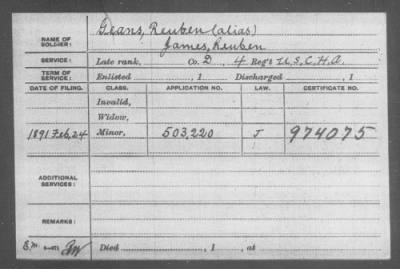 Geans, Reuben (alias)
NAME OF SOLDIER: James, Reuben
SERVICE: Late rank, Co. D, 4 Reg't U.S.C.H.A.
TERM OF SERVICE: Enlisted , 1 Discharged , 1
DATE OF FILING. CLASS. APPLICATION NO. LAW. CERTIFICATE NO.
Invalid,
Widow,
1891 Feb. 24 Minor, 503,220 J 974075
ADDITIONAL SERVICES:
REMARKS:
Died , 1 , at